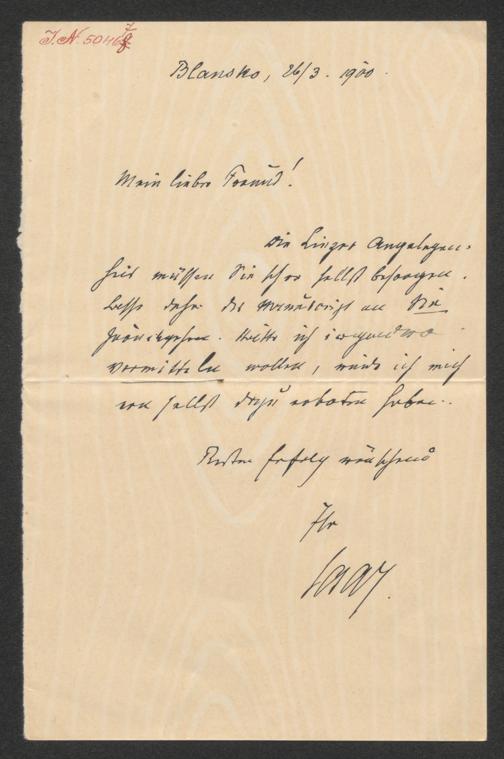 J. N. 5046
Blansko, 26/3. 1900.
Mein lieber Freund!
Die Linzer Angelegen-
heit müssen Sie schon selbst besorgen.
Lasse daher das Manuscript an Sie
zurückgehen. Hätte ich irgendwo
vermitteln wollen, würde ich mich
von selbst dazu erboten haben.
Besten Erfolg wünschend
Ihr
Saar.